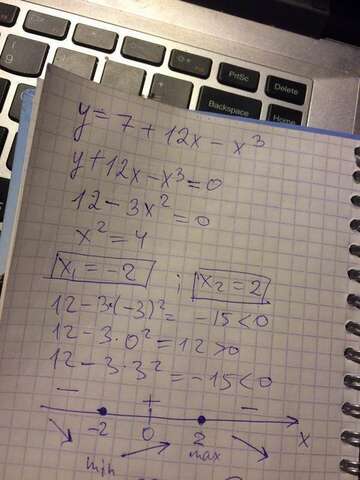 PrtSc
Delete
Backspace
Home
9
y = 7 + 12x - x³
y + 12x - x³ = 0
12 - 3x² = 0
x² = 4
x₁ = -2 ; x₂ = 2
12 - 3·(-3)² = -15 < 0
12 - 3·0² = 12 > 0
12 - 3·3² = -15 < 0
- + -
-2 0 2 x
min max